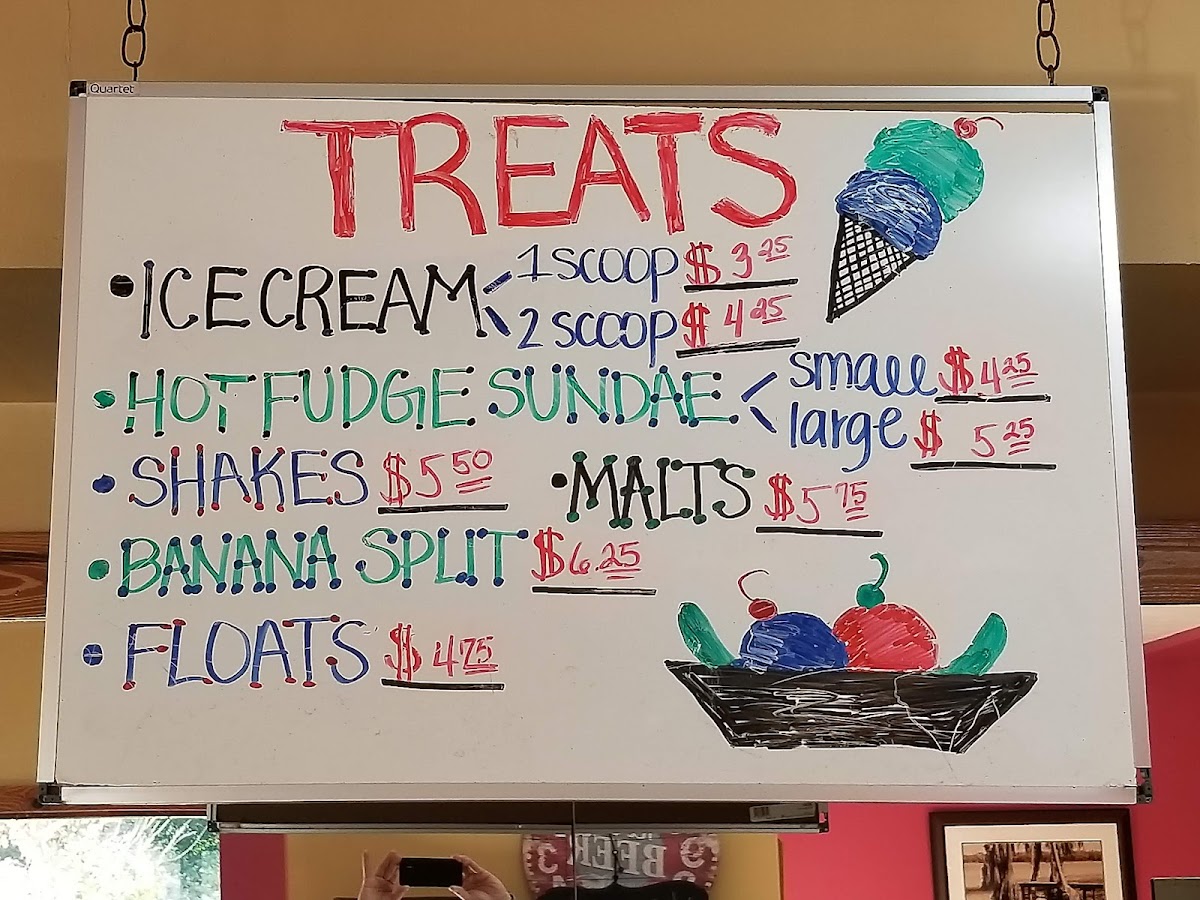 Quartet
TREATS
• ICE CREAM < 1 scoop $3.25
2 scoop $4.25
• HOT FUDGE SUNDAE < small $4.25
large $5.25
• SHAKES $5.50 • MALTS $5.75
• BANANA SPLIT $6.25
• FLOATS $4.75
BEER